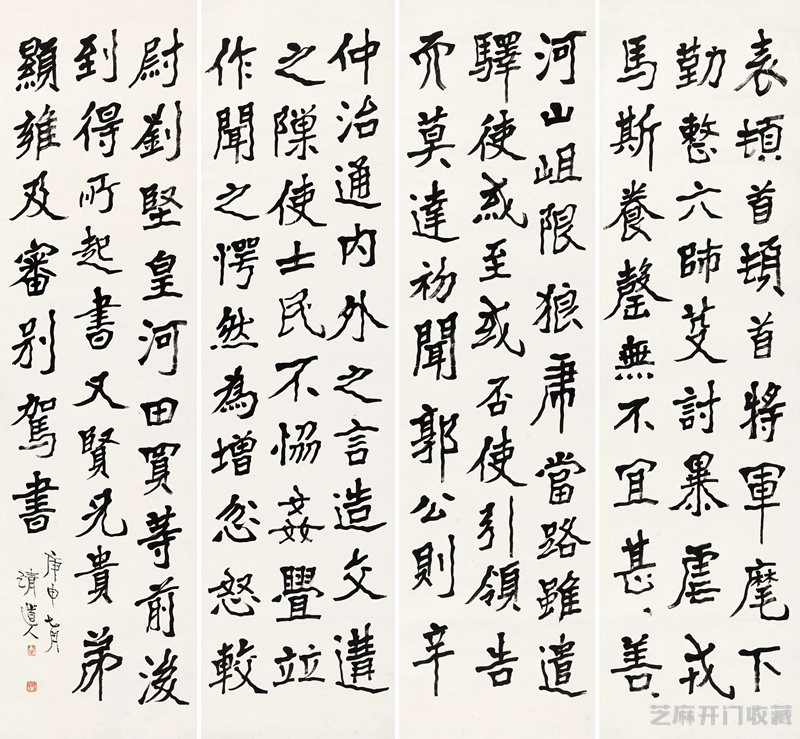 表頓首頓首將軍麾下
勤整六師芟討暴虐戎
馬斯養罄無不宜甚、善、
河山岨限狼虎當路雖遣
驛使或至或否使引領告
而莫達初聞郭公則辛
仲治通內外之言造交遘
之隟使士民不恊姦舋竝
作聞之愕然為增忿怒較
尉劉堅皇河田買等前後
到得所起書又賢兄貴弟
顯雍及審別駕書
庚申七月
清道人
芝麻开门收藏